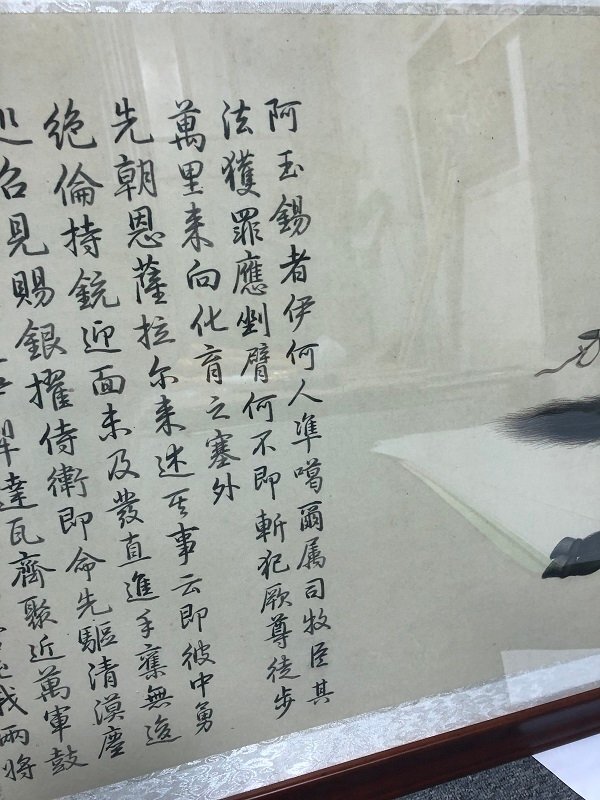 阿玉錫者伊何人凖噶爾属司牧臣其
法獲罪應剉臂何不即斬犯厥尊徒步
萬里来向化育之塞外
先朝恩薩拉尔来述其事云即彼中勇
絶倫持銃迎面未及發直進手奪無逡
巡召見賜銀擢侍衛即命先驅清漠塵
犁達瓦齊聚近萬軍鼓
我兩將